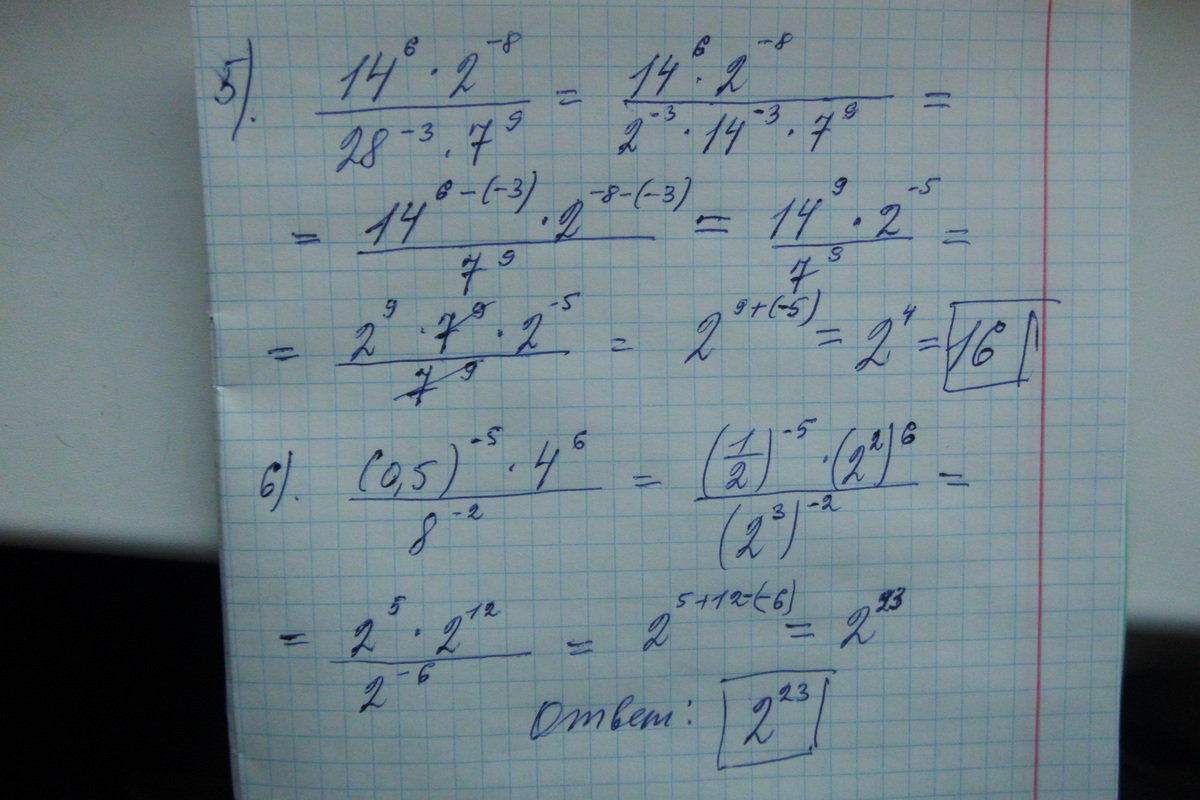 5). 14^6 · 2^-8 / 28^-3 · 7^9 = 14^6 · 2^-8 / 2^-3 · 14^-3 · 7^9 =
= 14^6-(-3) · 2^-8-(-3) / 7^9 = 14^9 · 2^-5 / 7^9 =
= 2^9 · 7^9 · 2^-5 / 7^9 = 2^9+(-5) = 2^4 = 16
6). (0,5)^-5 · 4^6 / 8^-2 = (1/2)^-5 · (2^2)^6 / (2^3)^-2 =
= 2^5 · 2^12 / 2^-6 = 2^5+12-(-6) = 2^23
Ответ: 2^23